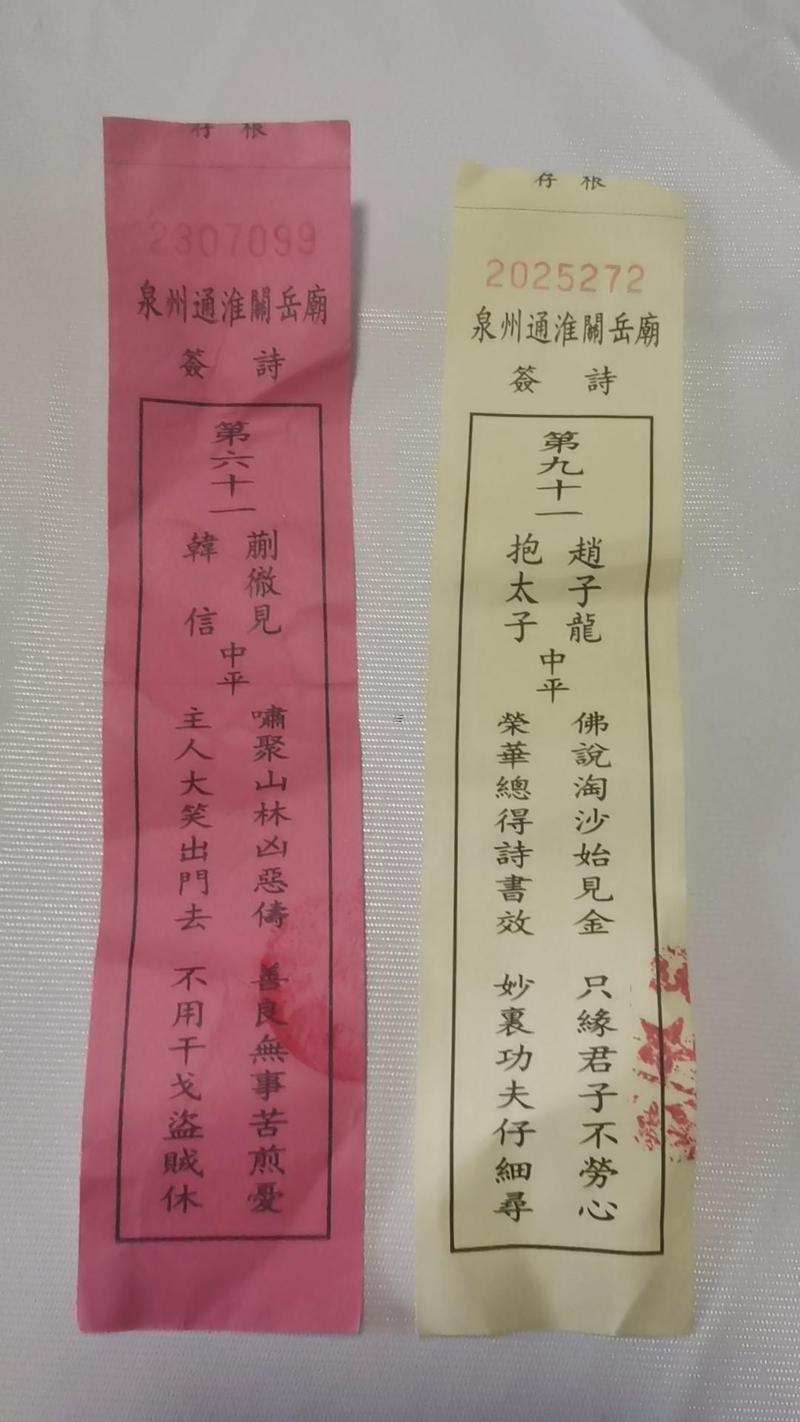 存根
2307099
泉州通淮關岳廟
簽詩
第六十一
蒯徹見
韓信
中平
嘯聚山林凶惡儔
善良無事苦煎憂
主人大笑出門去
不用干戈盜賊休
存根
2025272
泉州通淮關岳廟
簽詩
第九十一
趙子龍
抱太子
中平
佛說淘沙始見金
只緣君子不勞心
榮華總得詩書效
妙裏功夫仔細尋